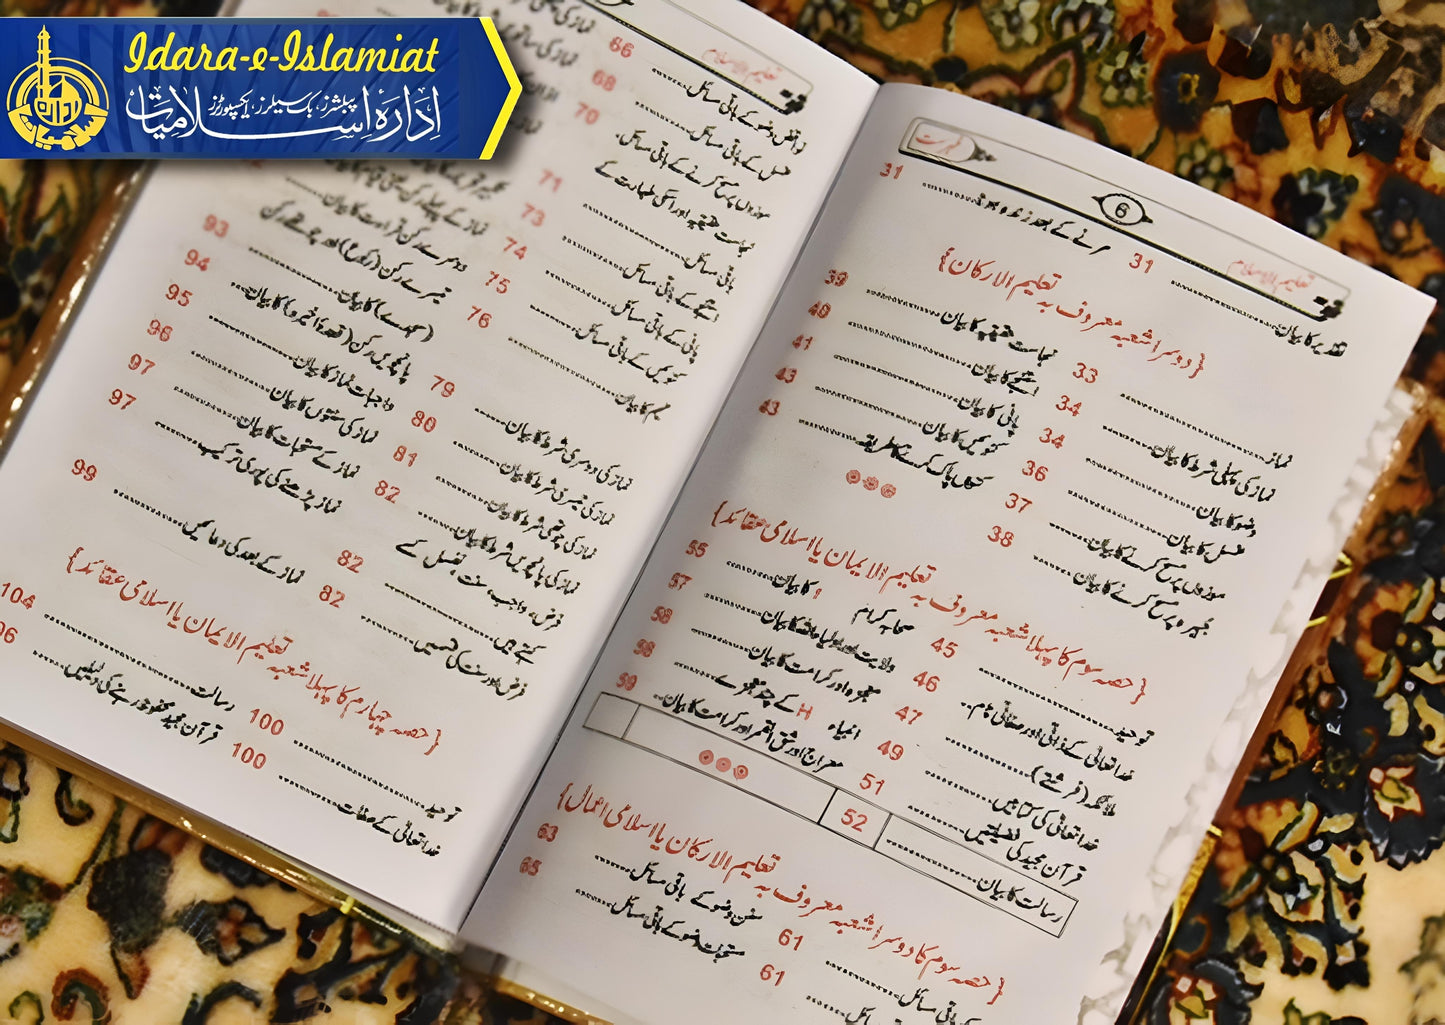 Idara-e-Islamiat
ادارۂ اسلامیات
پبلشرز، بک سیلرز، ایکسپورٹرز
تعلیم الاسلام
6
فہرست
تقدیر کا بیان 31
مرنے کے بعد زندہ ہونا 31
{دوسرا شعبہ معروف بہ تعلیم الارکان}
نماز 33
نماز کی پہلی شرط کا بیان 34
وضو کا بیان 34
غسل کا بیان 36
موزوں پر مسح کرنے کا بیان 37
جبیرہ پر مسح کرنے کا بیان 38
نجاست حقیقیہ کا بیان 39
استنجے کا بیان 40
پانی کا بیان 41
کنویں کا بیان 43
کنواں پاک کرنے کا طریقہ 43
{حصہ سوم کا پہلا شعبہ معروف بہ تعلیم الایمان یا اسلامی عقائد}
توحید 45
خدا تعالیٰ کے ذاتی اور صفاتی نام 46
ملائکہ (فرشتے) 47
خدا تعالیٰ کی کتابیں 49
قرآن مجید کی فضیلتیں 51
رسالت کا بیان 52
صحابہ کرام کا بیان 55
ولایت اور اولیاء اللہ کا بیان 57
معجزہ اور کرامت کا بیان 58
انبیاء کے چند معجزے 58
معراج اور شق القمر اور کرامت کا بیان 59
{حصہ سوم کا دوسرا شعبہ معروف بہ تعلیم الارکان یا اسلامی اعمال}
کے باقی مسائل 61
باقی مسائل 61
سنن وضو کے باقی مسائل 63
مستحبات وضو کے باقی مسائل 65
تعلیم الاسلام
نواقض وضو کے باقی مسائل 66
غسل کے باقی مسائل 68
موزوں پر مسح کرنے کے باقی مسائل 70
نجاست حقیقیہ اور اسکی طہارت کے
باقی مسائل 71
استنجے کے باقی مسائل 73
پانی کے باقی مسائل 74
کنویں کے باقی مسائل 75
تیمم کا بیان 76
نماز کی دوسری شرط کا بیان 79
نماز کی تیسری شرط کا بیان 80
نماز کی چوتھی شرط کا بیان 81
نماز کی پانچویں شرط کا بیان 82
فرض، واجب، سنت، نفل کسے
کہتے ہیں 82
فرض اور سنت کی قسمیں 82
نماز کی
نماز کی ساتویں شرط کا بیان
اذان
نماز
تکبیر تحریمہ کا بیان
نماز کے پہلے رکن یعنی قیام کا بیان
دوسرے رکن قرأت کا بیان
تیسرے رکن (رکوع) اور چوتھے رکن
(سجدے) کا بیان 93
پانچویں رکن (قعدہ اخیرہ) کا بیان 94
واجبات نماز کا بیان 95
نماز کی سنتوں کا بیان 96
نماز کے مستحبات کا بیان 97
نماز پڑھنے کی پوری ترکیب 97
نماز کے بعد کی دعائیں 99
{حصہ چہارم کا پہلا شعبہ تعلیم الایمان یا اسلامی عقائد}
توحید 100
خدا تعالیٰ کے صفات 100
رسالت 104
قرآن مجید محفوظ رہنے کی دلیلیں